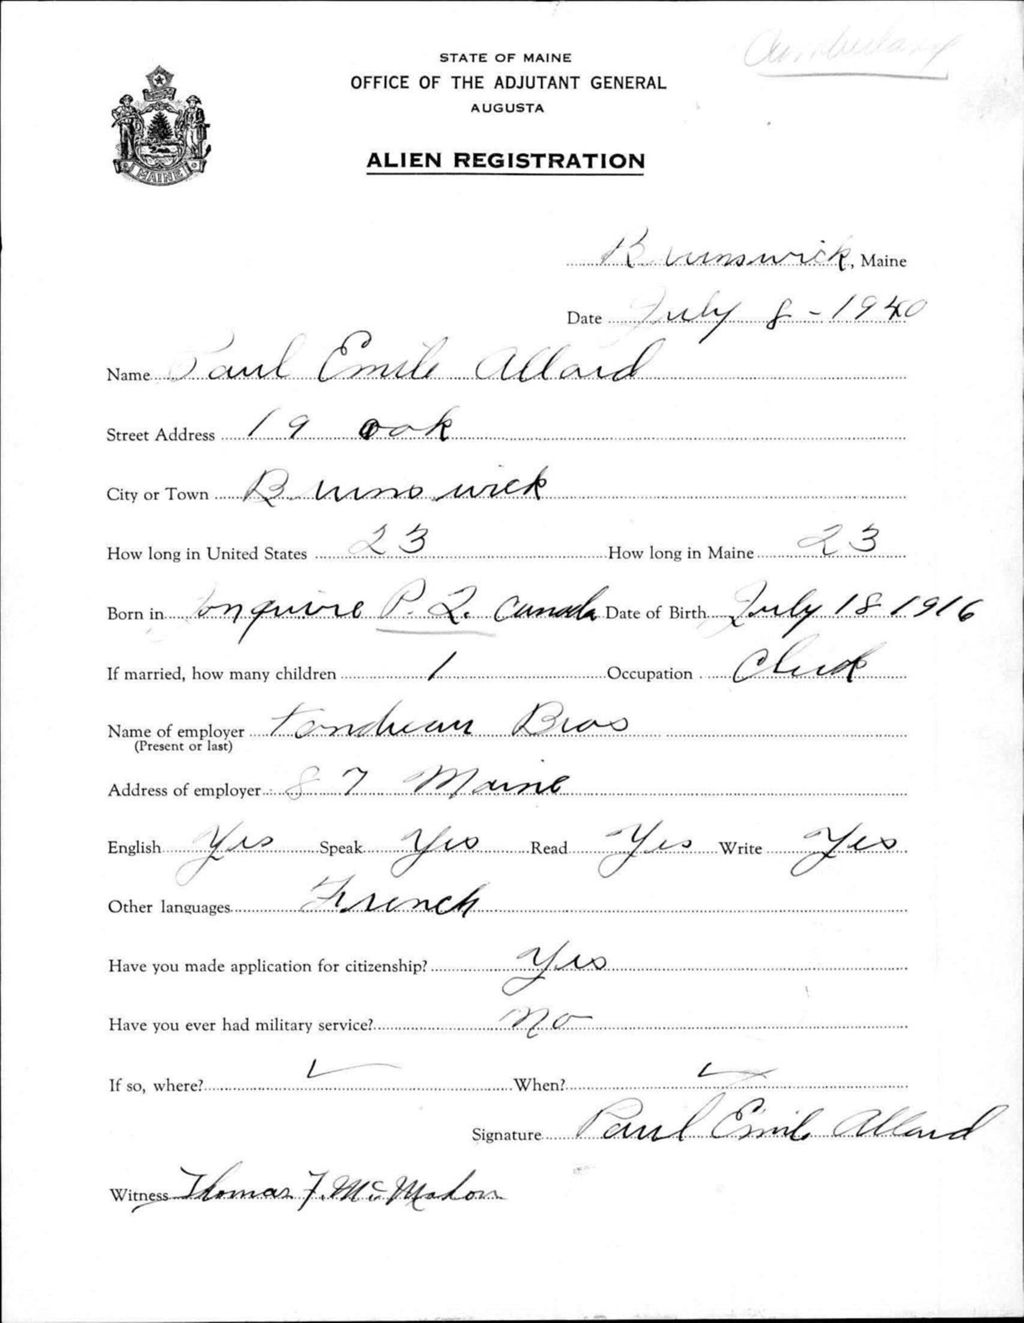 Cumberland
STATE OF MAINE
OFFICE OF THE ADJUTANT GENERAL
AUGUSTA
ALIEN REGISTRATION
MAINE
Brunswick, Maine
Date July 8 - 1940
Name Paul Emile Allard
Street Address 19 oak
City or Town Brunswick
How long in United States 23 How long in Maine 23
Born in Jonquire P. Q. Canada Date of Birth July 18 1916
If married, how many children 1 Occupation Clerk
Name of employer Tondreau Bros
(Present or last)
Address of employer 87 Maine
English Yes Speak Yes Read Yes Write Yes
Other languages French
Have you made application for citizenship? Yes
Have you ever had military service? no
If so, where? When?
Signature Paul Emile Allard
Witness Thomas F. McMahon